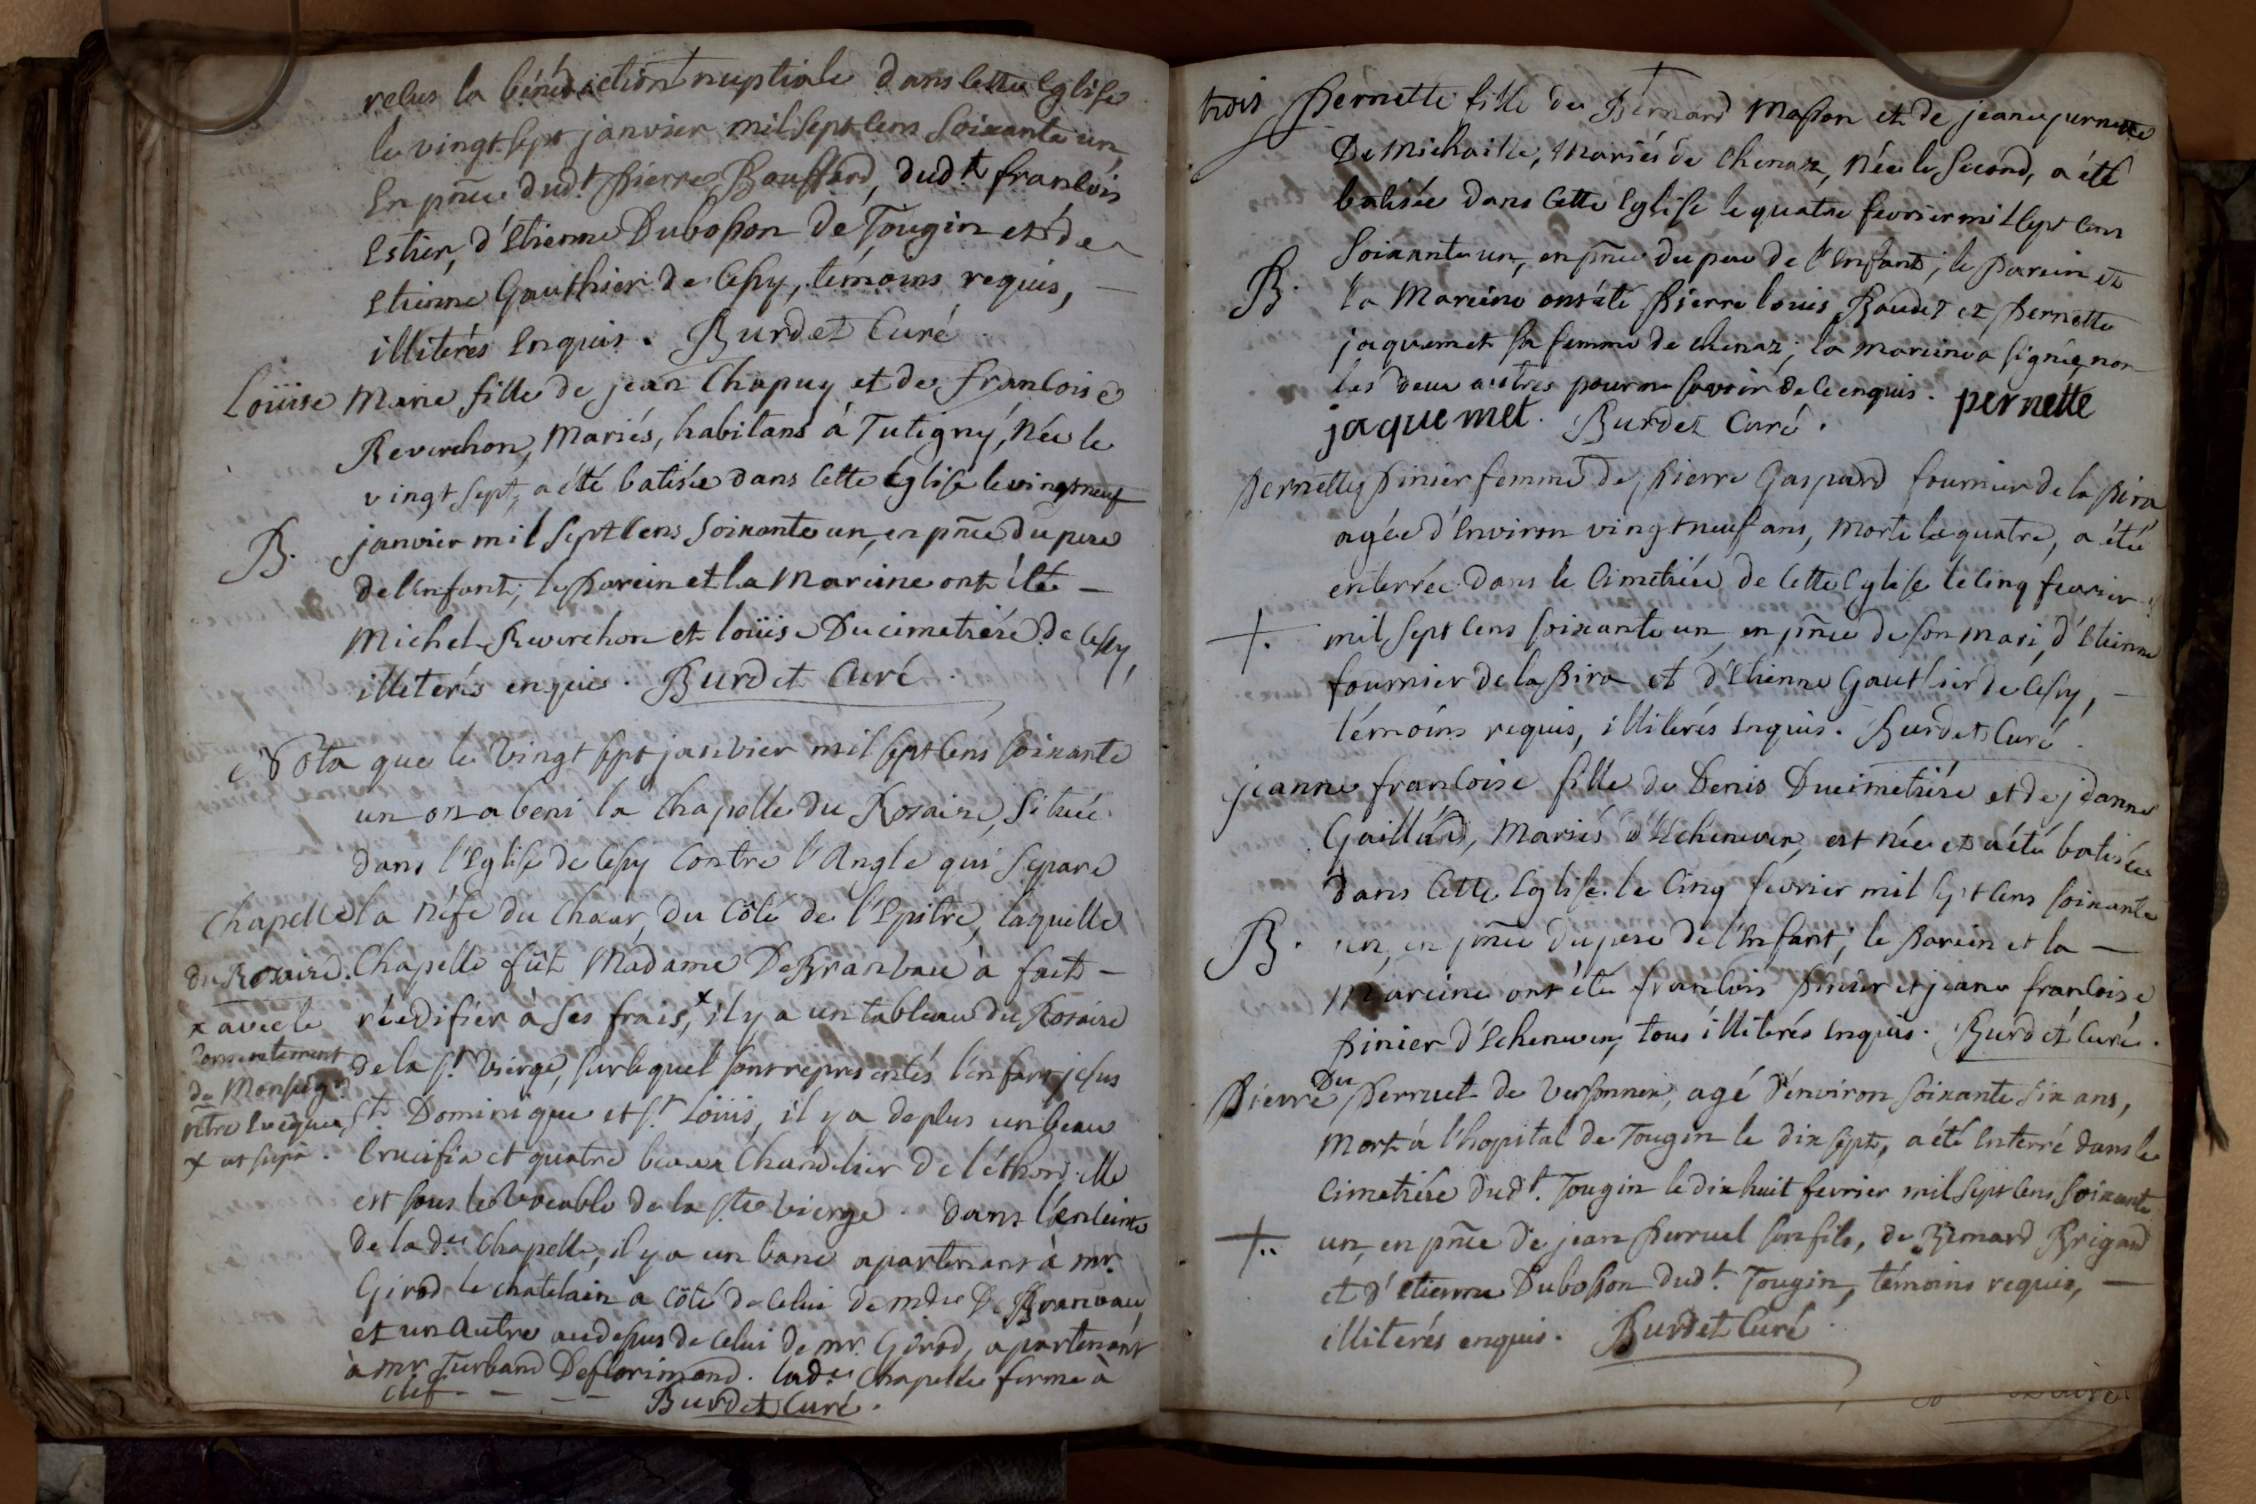 relus la bénédiction nuptiale dans cette Eglise
le vingt sept janvier mil sept cens soixante un,
En pñce dud.t pierre Bouffard, dud.t francois
Estier, d'Etienne Dubosson de Tougin et de
Etienne Gauthier de Cessy, témoins requis, —
illiterés Enquis. Burdet Curé.
Loüise Marie fille de jean Chapuy et de francoise
Reverchon, Mariés, habitans à Tutigny, Née le
vingt sept, a été batisée dans cette Eglise le vingt neuf
B. janvier mil sept cens soixante un, en pñce du pere
de l'enfant; le parein et la Mareine ont été —
Michel Reverchon et loüise Ducimetiére de Cessy,
illiterés enquis. Burdet Curé.
Nota que le vingt sept janvier mil sept cens soixante
un on a beni la chapelle du Rosaire, située
dans l'Eglise de Cessy contre l'Angle qui separe
Chapelle la Néfe du Chœur, du côté de l'Epitre, laquelle
du Rosaire. Chapelle fût Madame DeBranvau à fait —
x avec le réedifier à ses frais,x il y a un tableau du Rosaire
consentement de la S.t Vierge, sur lequel sont représentés l'enfant jesus
de Monseig.r S.t Dominique et S.t Loüis, il y a de plus un beau
nôtre Evêque,
x ut supra. Crucifix et quatre beaux Chandelier de léthon, elle
est sous le Vocable de la S.te Vierge. Dans l'enceinte
de la d.te Chapelle, il y a un banc apartenant à mr.
Girod le chatelain à côté de celui de mdme De Branvau,
et un autre au dessus de celui de mr. Girod, apartenant
à mr. Turband Deflorimond. lad.te Chapelle ferme à
clef. — — — Burdet Curé.
trois Pernette fille de Bernard Masson et de jeane pernette
De Michaille, Mariés de Chenaz, Née le second, a été
batisée dans cette Eglise le quatre fevrier mil sept cens
soixante un, en pñce du pere de l'Enfant; le Parein et
B. la Mareine ont été Pierre louis Baudet et Pernette
jaquemet sa femme de chenaz; la mareine a signée non
les deux autres pour ne savoir de ce enquis. pernette
jaquemet. Burdet Curé.
Pernette Pinier femme de pierre Gaspard fournier de la Pira
agée d'Environ vingt neuf ans, Morte le quatre, a été
enterrée dans le Cimetiére de cette Eglise le Cinq fevrier
+. mil sept cens soixante un, en pñce de son mari, d'Etienne
fournier de la Pira et d'Etienne Gauthier de Cessy, —
témoins requis, illiterés Enquis. Burdet Curé.
jeanne francoise fille de Denis Ducimetiére et de jeanne
Gaillard, Mariés d'Echenevex, est née et a été batisée
dans cette Eglise le Cinq fevrier mil sept cens soixante
B. un, en pñce du pere de l'Enfant; le Parein et la —
Mareine ont été francois Pinier et jeane francoise
Pinier d'Echenevex, tous illiterés Enquis. Burdet Curé.
Du
Pierre Perruet de Versonnex, agé d'environ soixante six ans,
Mort à l'hopital de Tougin le dix sept, a été Enterré dans le
Cimetiére dud.t Tougin le dix huit fevrier mil sept cens soixante
+.. un, en pñce de jean Perruet son fils, de Bernard Brigand
et d'Etienne Dubosson dud.t Tougin, témoins requis, —
illiterés enquis. Burdet Curé.